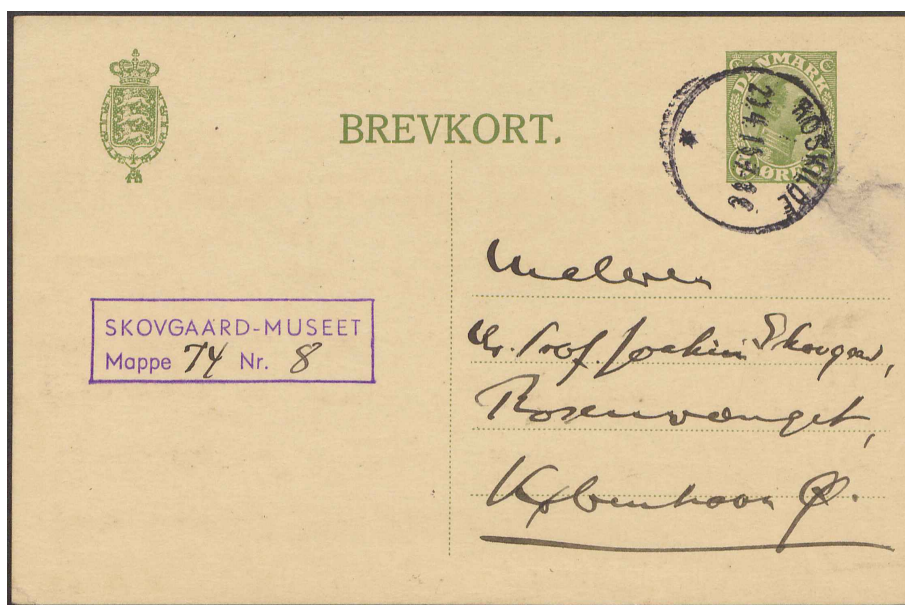 BREVKORT.
DENMARK
ØRE
ROSKILDE
SKOVGAARD-MUSEET
Mappe 74 Nr. 8
Maleren
Hr. Prof. Joakim Skovgaard,
Rosenvænget,
København Ø.